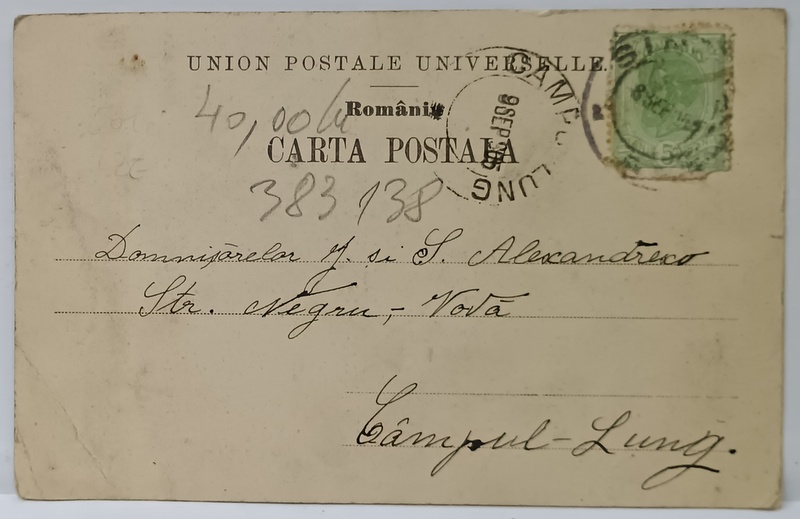 UNION POSTALE UNIVERSELLE.
România
CARTA POSTALA
40,00 lei
383 138
CAMPU LUNG
9 SEP 906
5
Domnișoarelor J. si S. Alexandrexo
Str. Negru-Vodă
Câmpul-Lung.